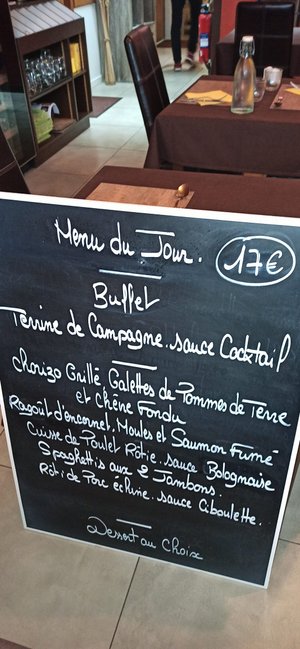 Menu du Jour.
17€
Buffet
Terrine de Campagne. sauce Cocktail
Chorizo Grillé. Galettes de Pommes de Terre
et Chêne Fondu
Ragoût d'encornet, Moules et Saumon Fumé
Cuisse de Poulet Rôtie. sauce Bolognaise
Spaghettis aux 2 Jambons.
Rôti de Porc échine. sauce Ciboulette.
Dessert au Choix